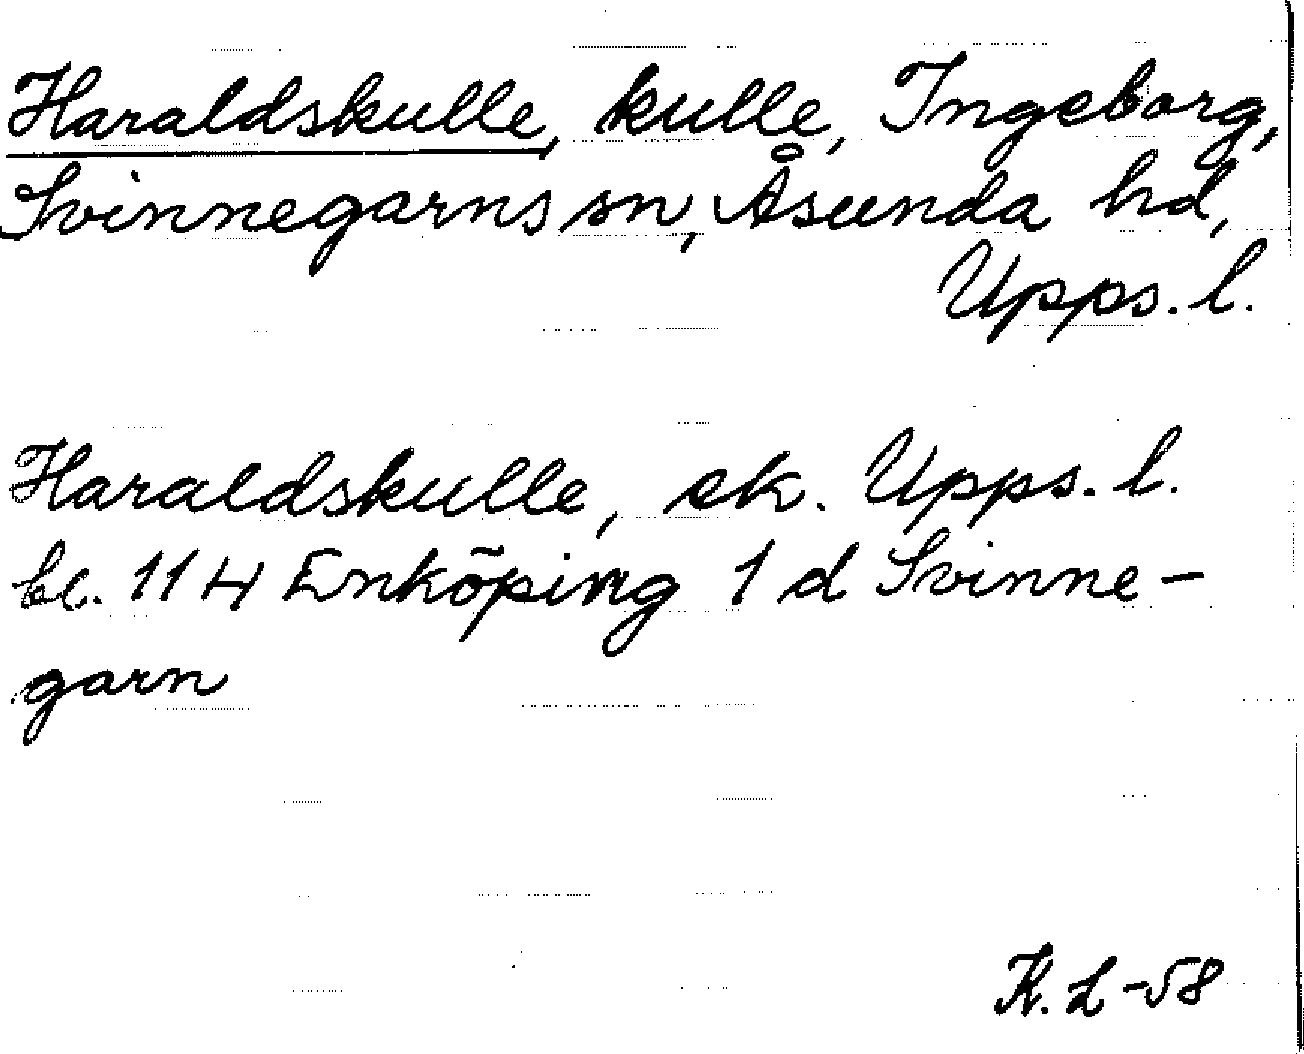 Haraldskulle, kulle, Ingeborg,
Svinnegarns sn, Åsunda hd,
Upps. l.
Haraldskulle, ek. Upps. l.
bl. 114 Enköping 1 d Svinne-
garn
K. L -58